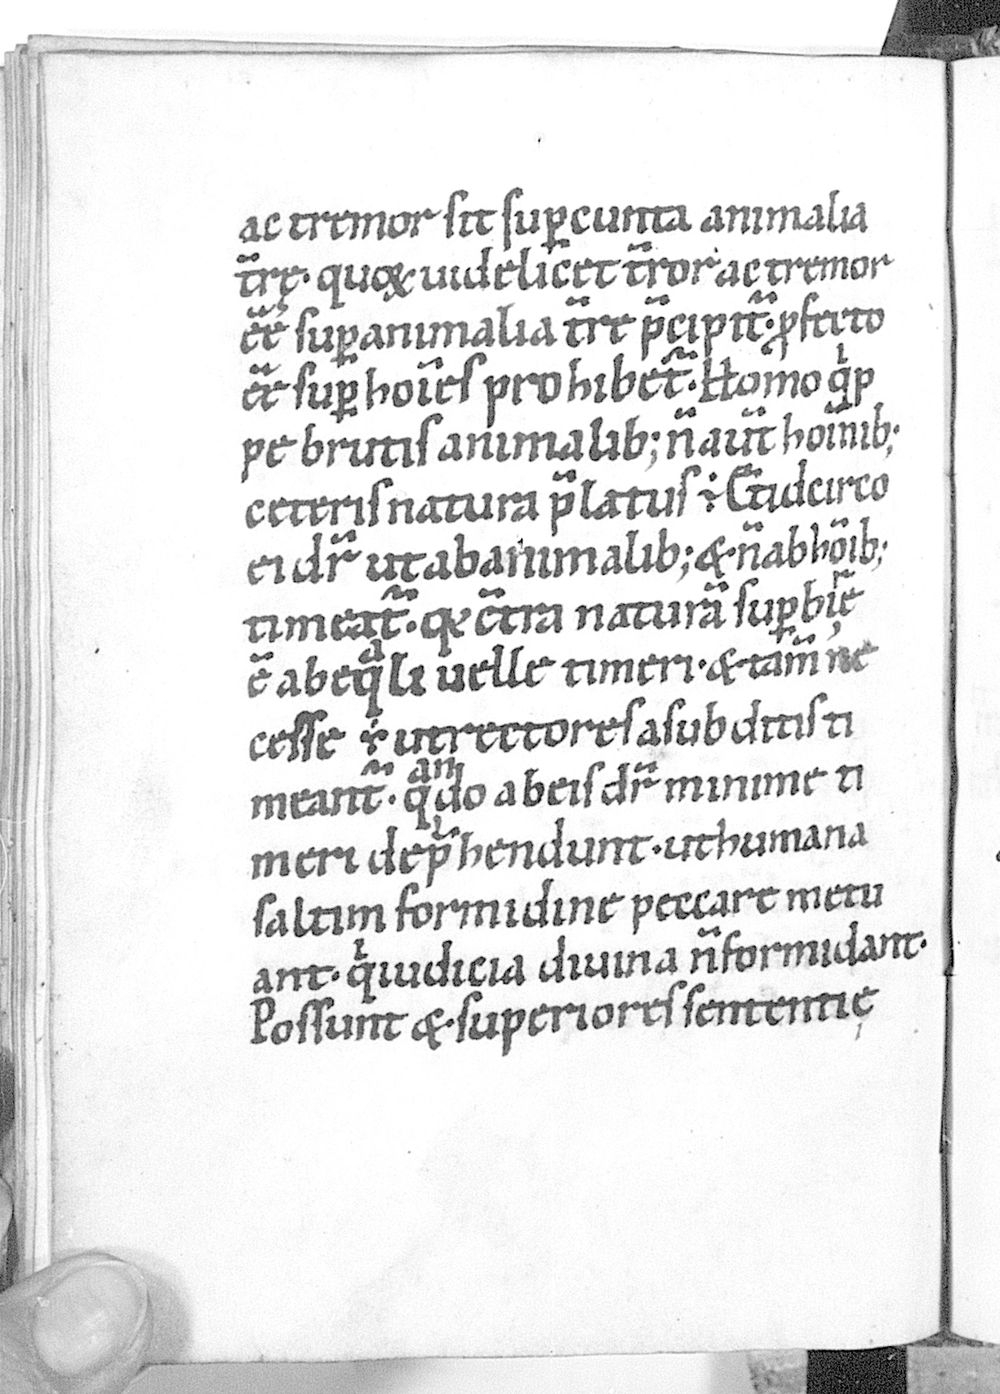 ac tremor sit sup̲ cunta animalia
t̃rę· quoꝝ uidelic̃et t̃ror ac tremor
ẽẽ sup̲ animalia t̃re p̃cipit᷑· ꝓfecto
ẽẽ sup̲ hoĩes prohibet᷑· Homo qͥp
pe brutis animalib; ñ aũt homĩb;
ceteris natura p̃latus ÷ Et̃ idcirco
ei dr̃ ut ab animalib; & ñ ab hõib;
timeat᷑· qꝛ c̃tra naturã sup̲bir̃ę
ẽ ab eqᷓli uelle timeri· & tam̃ ne
cesse ÷ ut rectores a subditis ti
meant᷑· qᵃⁿdo ab eis dr̃ minime ti
meri dep̃hendunt· ut humana
saltim formidine peccare metu
ant· qͥ iudicia diuina ñ formidant·
Possunt & superiores sententię